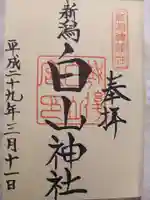 奉拝
新潟
白山神社
平成二十九年三月十一日